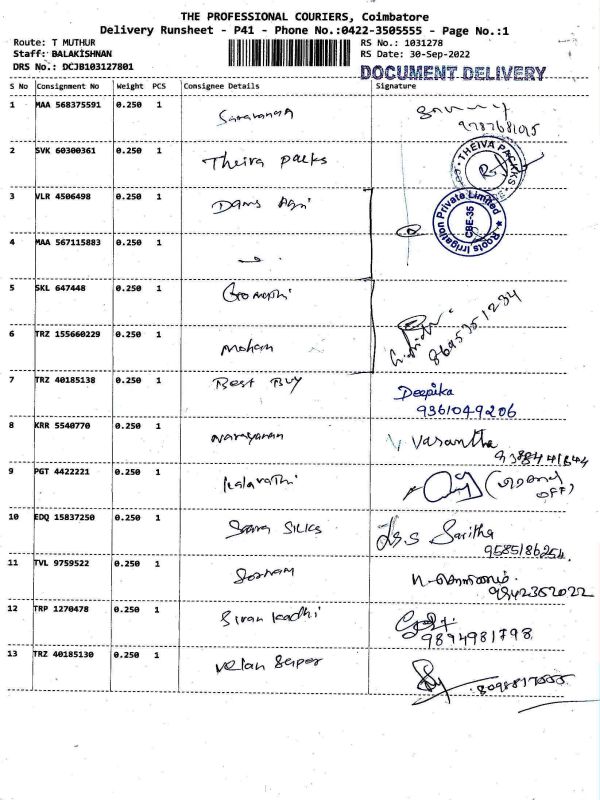 THE PROFESSIONAL COURIERS, Coimbatore
Delivery Runsheet - P41 - Phone No.:0422-3505555 - Page No.:1
Route: T MUTHUR RS No.: 1031278
Staff: BALAKISHNAN RS Date: 30-Sep-2022
DRS No.: DCJB103127801 DOCUMENT DELIVERY
S No Consignment No Weight PCS Consignee Details Signature
1 MAA 568375591 0.250 1 Saravanan
2 SVK 60300361 0.250 1 Theiva packs
THEIVA PACKKS
3 VLR 4506498 0.250 1
Roots Irrigation Private Limited
CBE-35
4 MAA 567115883 0.250 1
5 SKL 647448 0.250 1 Gomathi
8695351234
6 TRZ 155660229 0.250 1 Mohan
7 TRZ 40185138 0.250 1 Best Buy Deepika
9361049206
8 KRR 5540770 0.250 1 Narayanan V. Vasantha
9 PGT 4422221 0.250 1 Kalavathi
OFF)
10 EDQ 15837250 0.250 1 Saritha
9585186254
11 TVL 9759522 0.250 1
9842352022
12 TRP 1270478 0.250 1
9894981798
13 TRZ 40185130 0.250 1 Velan Super